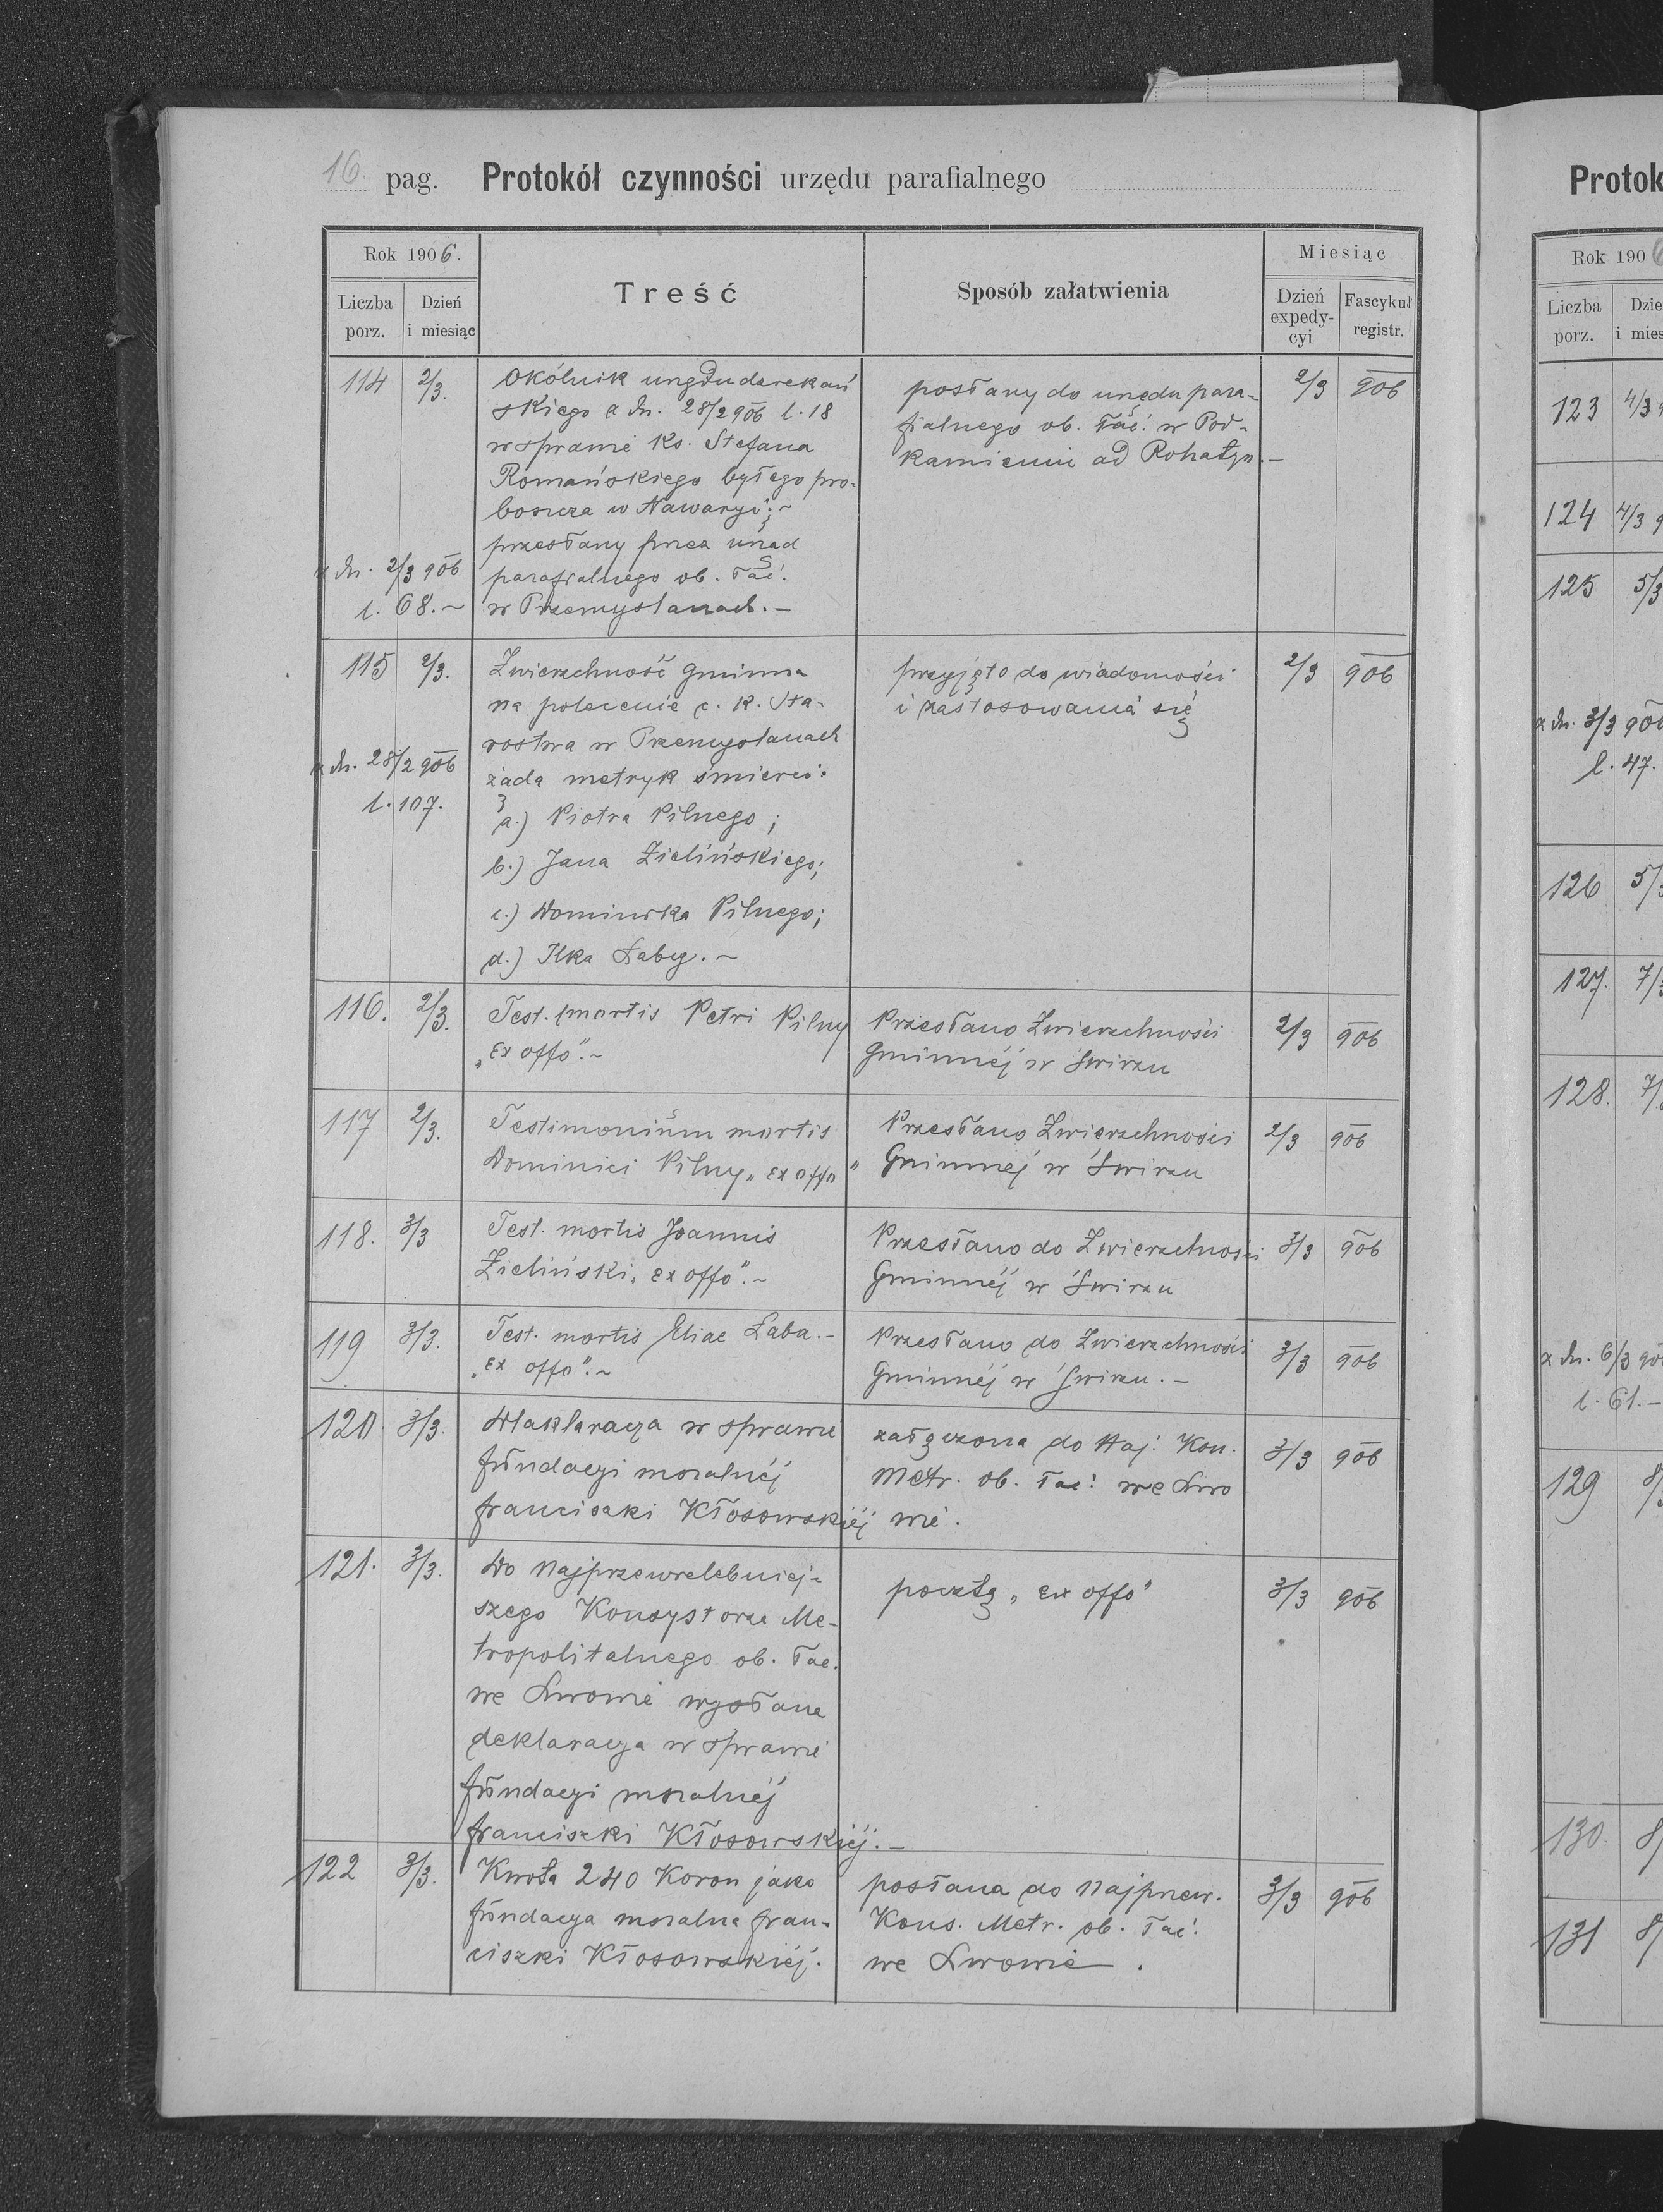 16. pag. Protokół czynności urzędu parafialnego
Rok 1906.
Treść
Sposób załatwienia
Miesiąc
Liczba porz.
Dzień i miesiąc
Dzień expedycyi
Fascykuł registr.
114 2/3. Okólnik urzędu dziekań
skiego z dn. 28/2 906 l. 18
w sprawie Ks. Stefana
Romańskiego byłego pro-
boszcza w Nawaryi; ~
przesłany przez urząd
z dn. 2/3 906 parafialnego ob. łać.
l. 68. ~ w Przemyślanach. –
posłany do urzędu para-
fialnego ob. łać. w Pod-
kamieniu ad Rohatyn. –
2/3 906
115 2/3. Zwierzchność gminna
na polecenie c. k. Sta-
rostwa w Przemyślanach
z dn. 28/2 906 żąda metryk śmierci:
l. 107. a.) Piotra Pilnego;
b.) Jana Zielińskiego;
c.) Dominika Pilnego;
d.) Ilka Łaby. ~
przyjęto do wiadomości
i zastosowania się
2/3 906
116. 2/3. Test. mortis Petri Pilny
„ex offo”. ~
Przesłano Zwierzchności
Gminnéj w Świrzu
2/3 906
117 2/3. Testimonium mortis
Dominici Pilny „ex offo”
Przesłano Zwierzchności
Gminnej w Świrzu
2/3 906
118. 3/3 Test. mortis Joannis
Zieliński „ex offo”. ~
Przesłano do Zwierzchności
Gminnéj w Świrzu
3/3 906
119 3/3. Test. mortis Eliae Łaba. –
„ex offo”. ~
Przesłano do Zwierzchności
Gminnéj w Świrzu. –
3/3 906
120. 3/3. Deklaracya w sprawie
fundacyi mszalnéj
Franciszki Kłosowskiéj
załączona do Naj. Kon.
Metr. ob. łać. we Lwo
wie.
3/3 906
121. 3/3. Do Najprzewielebniej-
szego Konsystorza Me-
tropolitalnego ob. łac.
we Lwowie wysłana
deklaracya w sprawie
fundacyi mszalnéj
Franciszki Kłosowskiéj. –
pocztą „ex offo”
3/3 906
122 3/3. Kwota 240 Koron jako
fundacya mszalna Fran-
ciszki Kłosowskiéj.
posłana do Najprzew.
Kons. Metr. ob. łać.
we Lwowie.
3/3 906
Protok
Rok 190
Liczba porz.
Dzie
i mies
123 4/3
124 4/3
125 5/3
z dn. 3/3 906
l. 47.
126 5/
127. 7/
128. 7/
z dn. 6/3 90
l. 61. –
129 8/
130. 8/
131 8/